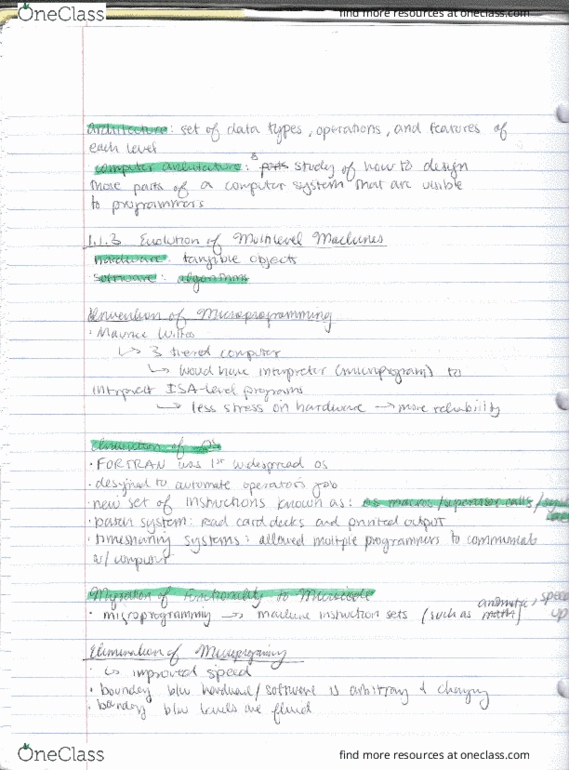 OneClass
find more resources at oneclass.com
architecture: set of data types, operations, and features of
each level
computer architecture: study of how to design
those parts of a computer system that are visible
to programmers
1.1.3 Evolution of Multilevel Machines
hardware: tangible objects
software: algorithms
Invention of Microprogramming
· Maurice Wilkes
↳ 3 tiered computer
↳ would have interpreter (microprogram) to
interpret ISA-level programs
↳ less stress on hardware → more reliability
Invention of OS
· FORTRAN was 1st widespread OS
· designed to automate operators job
· new set of instructions known as: OS macros/supervisor calls/
· batch system: read card decks and printed output
· timesharing systems: allowed multiple programmers to communicate
w/ computer
Migration of Functionality to Microcode
arithmetic, speed
· microprogramming → machine instruction sets (such as math) up
Elimination of Microprogramming
↳ improved speed
· boundary btw hardware/software is arbitrary & changing
· boundary btw levels are fluid
OneClass
find more resources at oneclass.com